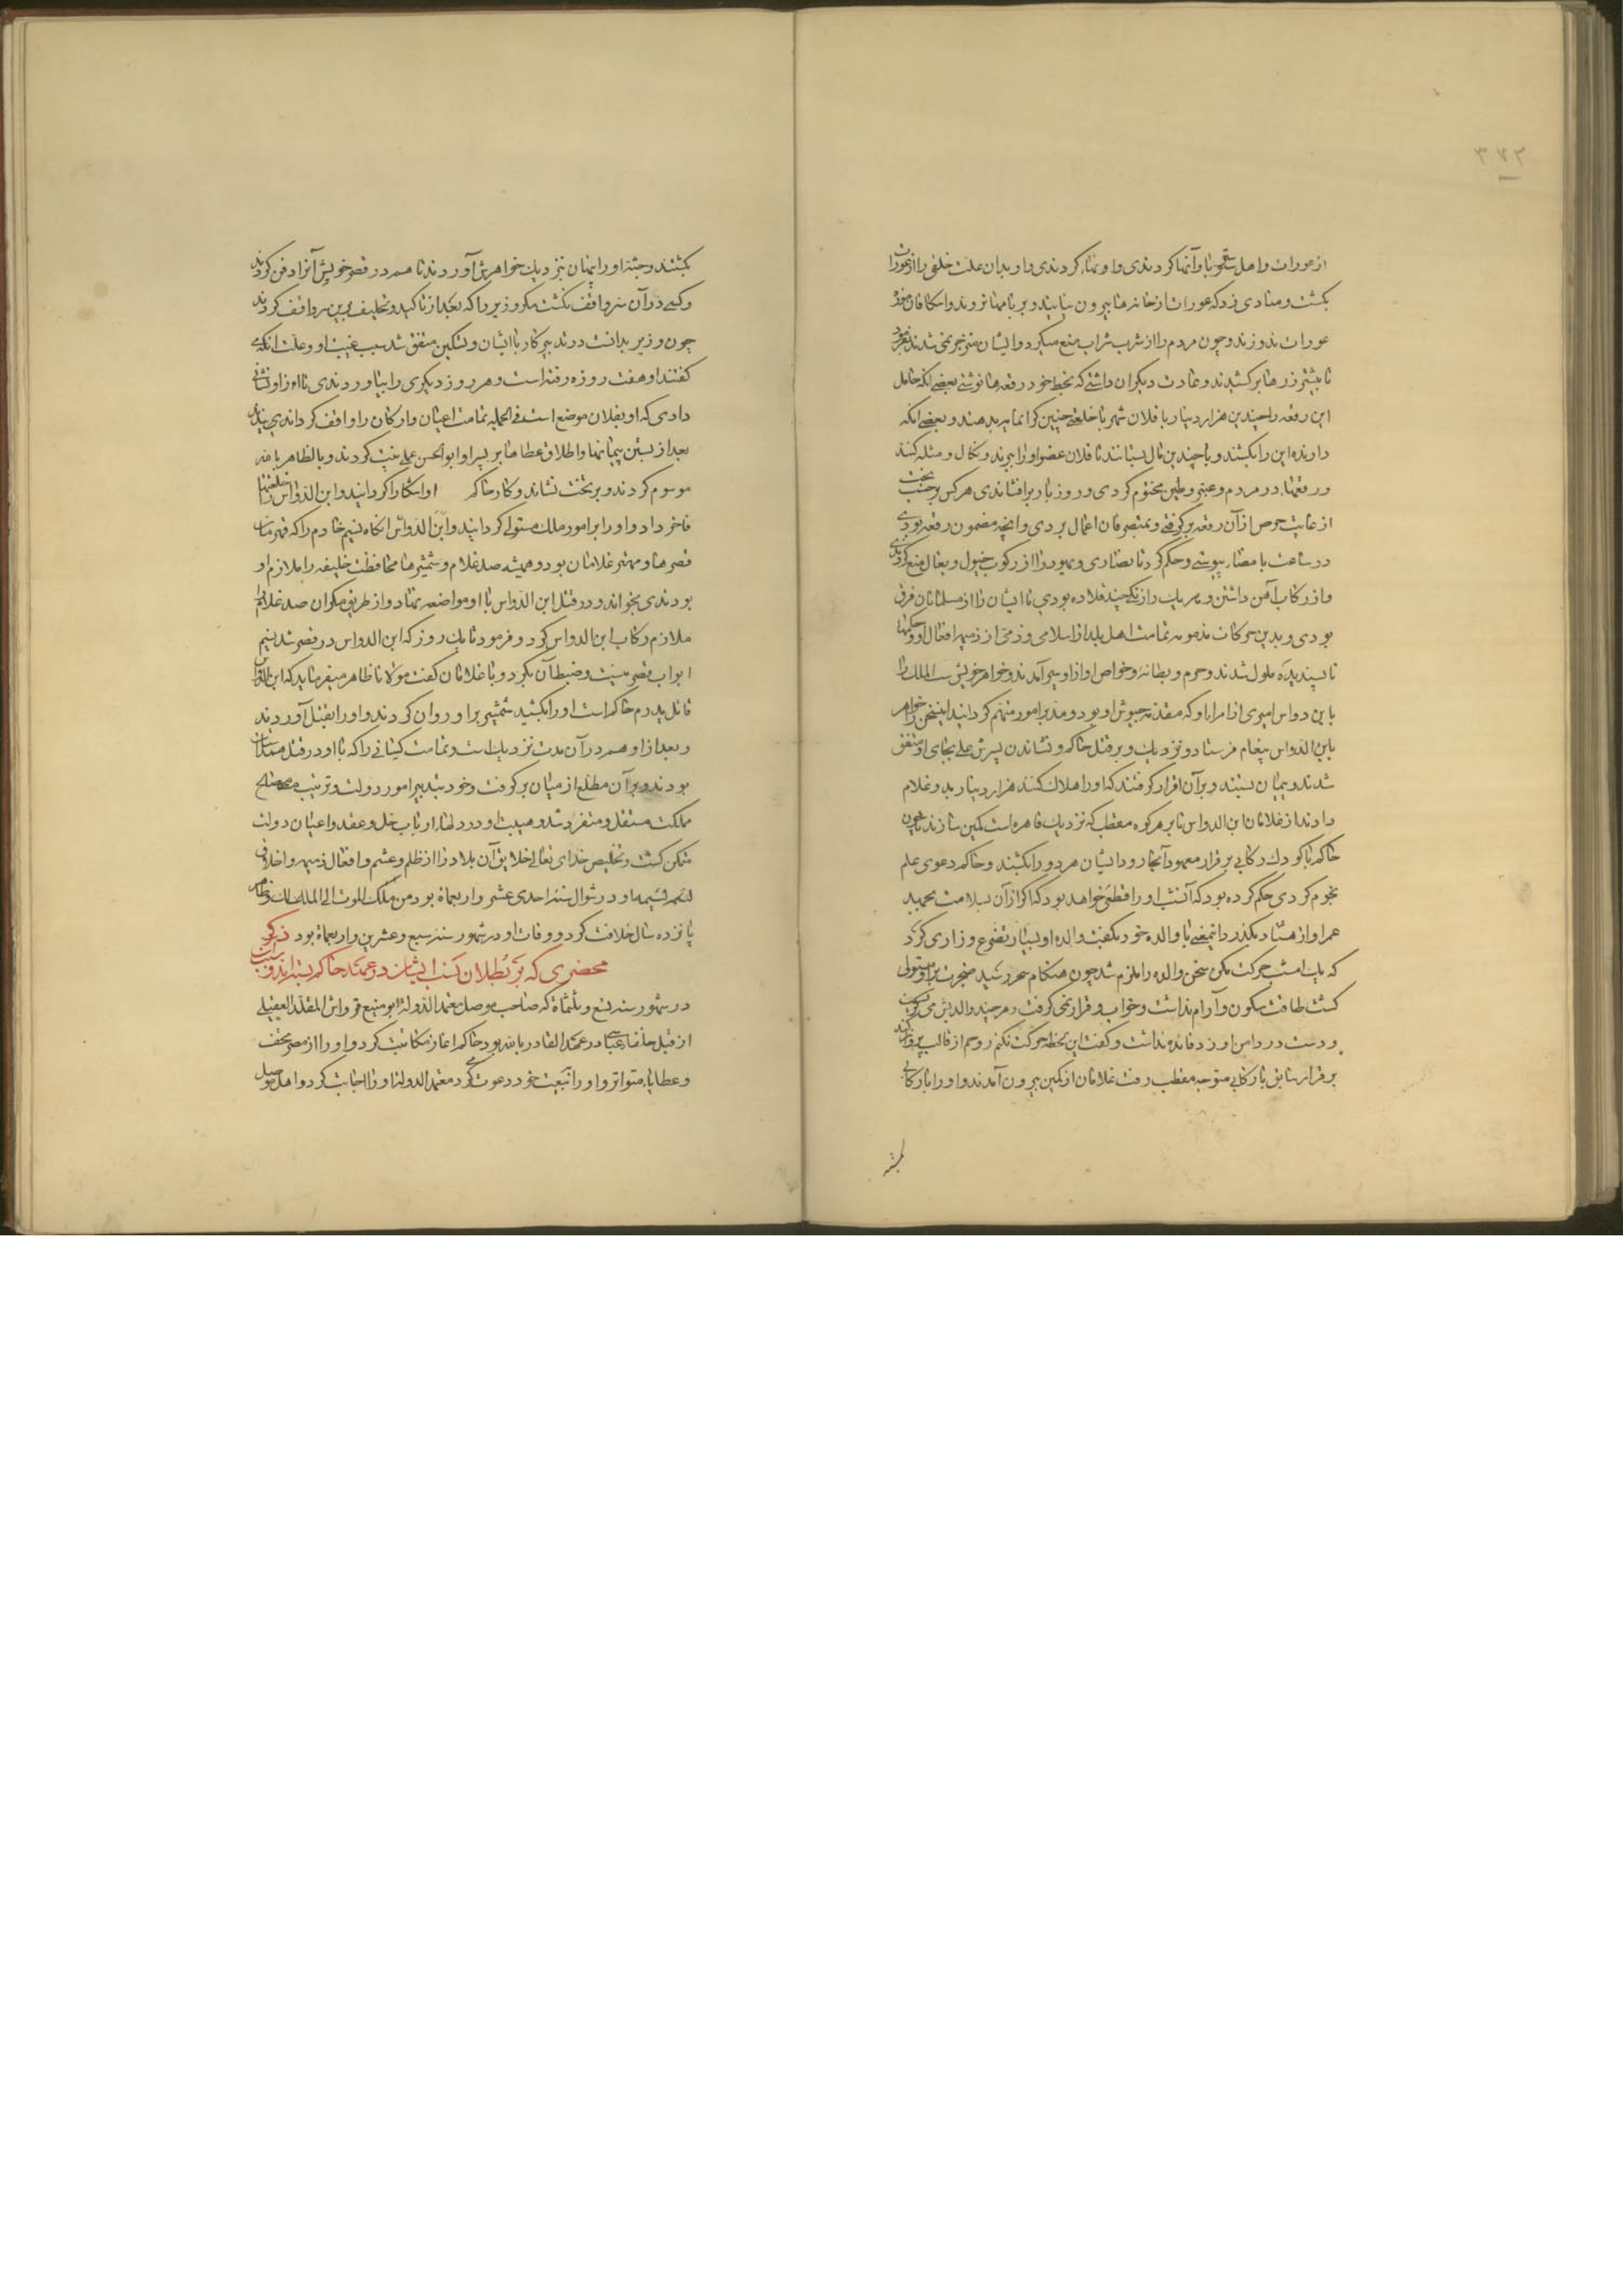 ۳۷۲
از عورات و اهل ستر با و آنها کردندی و او بدان علت خلقی را از عورات
بکشت و منادی زد که عورات از خانه‌ها بیرون نیایند و بر بامها نروند و اسکافان موزهٔ
عورات ندوزند و چون مردم را از شرب شراب منع میکرد و ایشان منزجر نمی شدند بفرمود
تا بیشتر رزها برکشیدند و عادت دیگر آن داشتی که بخط خود رقعه‌ها نوشتی بعضی آنکه حامل
این رقعه را چندین هزار دینار یا فلان شهر با خلعتی چنین گرانمایه بدهند و بعضی آنکه
دارنده این را بکشند و یا چندین مال بستانند تا فلان عضو او را ببرند و نکال و مثله کنند
و رقعها در مردم و عنبر و طین مختوم کردی و روز بار برافشاندی هر کس بر حسب بخت
از غایت حرص از آن رقعه برگرفتی و بمتصرفان اعمال بردی و آنچه مضمون رقعه بودی
در ساعت بامضا پیوستی و حکم کرد تا نصاری و یهود را از رکوب خیول و بغال منع کردندی
و از رکاب آهن داشتن و هر یک را زنگی چند قلاده بودی تا ایشان را از مسلمانان فرق
بودی و بدین حرکات مذمومه تمامت اهل بلد از اسلامی و ذمی از ذمیم افعال او و حکمهاء
ناپسندیده ملول شدند و حرم و بطانه و خواص او از او بسر آمدند و خواهر خویش ست الملک را
با ابن دواس امیری از امرا او که مقدم جیوش او بود و مدبر امور متهم گردانید این سخن خواهر
بابن الدواس پیغام فرستاد و نزدیک و بر قتل حاکم و نشاندن پسرش علی بجای او متفق
شدند و پیمان بستند و بر آن اقرار گرفتند که او را هلاک کنند هزار دینار بدو غلام
دادند از غلامان ابن الدواس تا بر کوه مقطب که نزدیک قاهره است کمین سازند تا چون
حاکم با کودک رکابی بر قرار معهود آنجا رود ایشان هر دو را بکشند و حاکم دعوی علم
نجوم کردی حکم کرده بود که آن شب او را قطعی خواهد بود که اگر از آن بسلامت بجهد
عمر او از هشتاد بگذرد این معنی با والده خود بگفت والده او بسیار تضرع و زاری کرد
که یک امشب حرکت مکن سخن والده را ملزم شد چون هنگام سحر رسید ضجرت بر او مستولی
گشت طاقت سکون و آرام نداشت و خواب و قرار نمی گرفت هر چند والدش می گریست
و دست در دامن او زد فائده نداشت و گفت این لحظه حرکت نکنم روحم از قالب پرواز کند
بر قرار سابق با رکابی متوجه مقطب رفت غلامان از کمین بیرون آمدند و او را با رکابی
بکشتند
بکشتند و جثه او را پنهان نزدیک خواهرش آوردند تا هم در قصر خویش آنرا دفن کردند
و کسی در آن سر واقف نگشت مگر وزیر را که بعد از تاکید و تحلیف برین سر واقف کردند
چون وزیر بدانست در تدبیر کار با ایشان و تسکین متفق شد سبب غیبت او و علت آنکه می
گفتند او هفت روزه رفته است و هر روز دیگری را بیاوردندی تا از او نشانی
دادی که او بفلان موضع است فی الجمله تمامت اعیان و ارکان را واقف گردانیدند
بعد از بستن پیمانها و اطلاق عطاها بر پسر او ابوالحسن علی بیعت کردند و بالظاهر بالله
موسوم کردند و بر تخت نشاند و کار حاکم او آشکارا گردانید و ابن الدواس را خلعتها
فاخر داد و او را بر امور ملک مستولی گردانید و ابن الدواس آنگاه نسیم خادم را که قهرمان
قصرها و مهتر غلامان بود و همیشه صد غلام و شمشیرها محافظت خلیفه را ملازم او
بودندی بخواند و در قتل ابن الدواس با او مواضعه نهاد و از طریق مکر آن صد غلام را
ملازم رکاب ابن الدواس کرد و فرمود تا یک روز که ابن الدواس در قصر شد نسیم
ابواب قصر ببست و ضبط آن بکرد و با غلامان گفت مولانا ظاهر میفرماید که ابن الدواس
قاتل پدرم حاکم است او را بکشید شمشیر بر او روان کردند و او را بقتل آوردند
و بعد از او هم در آن مدت نزدیک است و تمامت کسانی را که با او در قتل همداستان
بودند و بر آن مطلع از میان برگرفت و خود بتدبیر امور دولت و ترتیب مصالح
مملکت مستقل و متفرد شد و هیبت او در دلهاء ارباب حل و عقد و اعیان دولت
متمکن گشت و تخلیص خدای تعالی خلایق آن بلاد را از ظلم و غشم و افعال ذمیمه و اخلاق
لئیمه او در شوال سنه احدی عشر و اربعمأة بود من ملک الموت الی الملک و ظاهر
پانزده سال خلافت کرد و وفات او در شهور سنه سبع و عشرین و اربعمأة بود ذکر
محضری که بر بطلان نسب ایشان در عهد حاکم بستند و سبب آن
در شهور سنه تسع و ثلثمأة که صاحب موصل معتمد الدوله ابو منیع قرواش المقلد العقیلی
از قبل خلفاء عباسی در عهد القادر بالله بود حاکم آغاز مکاتبت کرد و او را از مصر تحف
و عطایاء متواتر و او را تبعیت خود دعوت می کرد معتمد الدوله او را اجابت کرد و اهل موصل